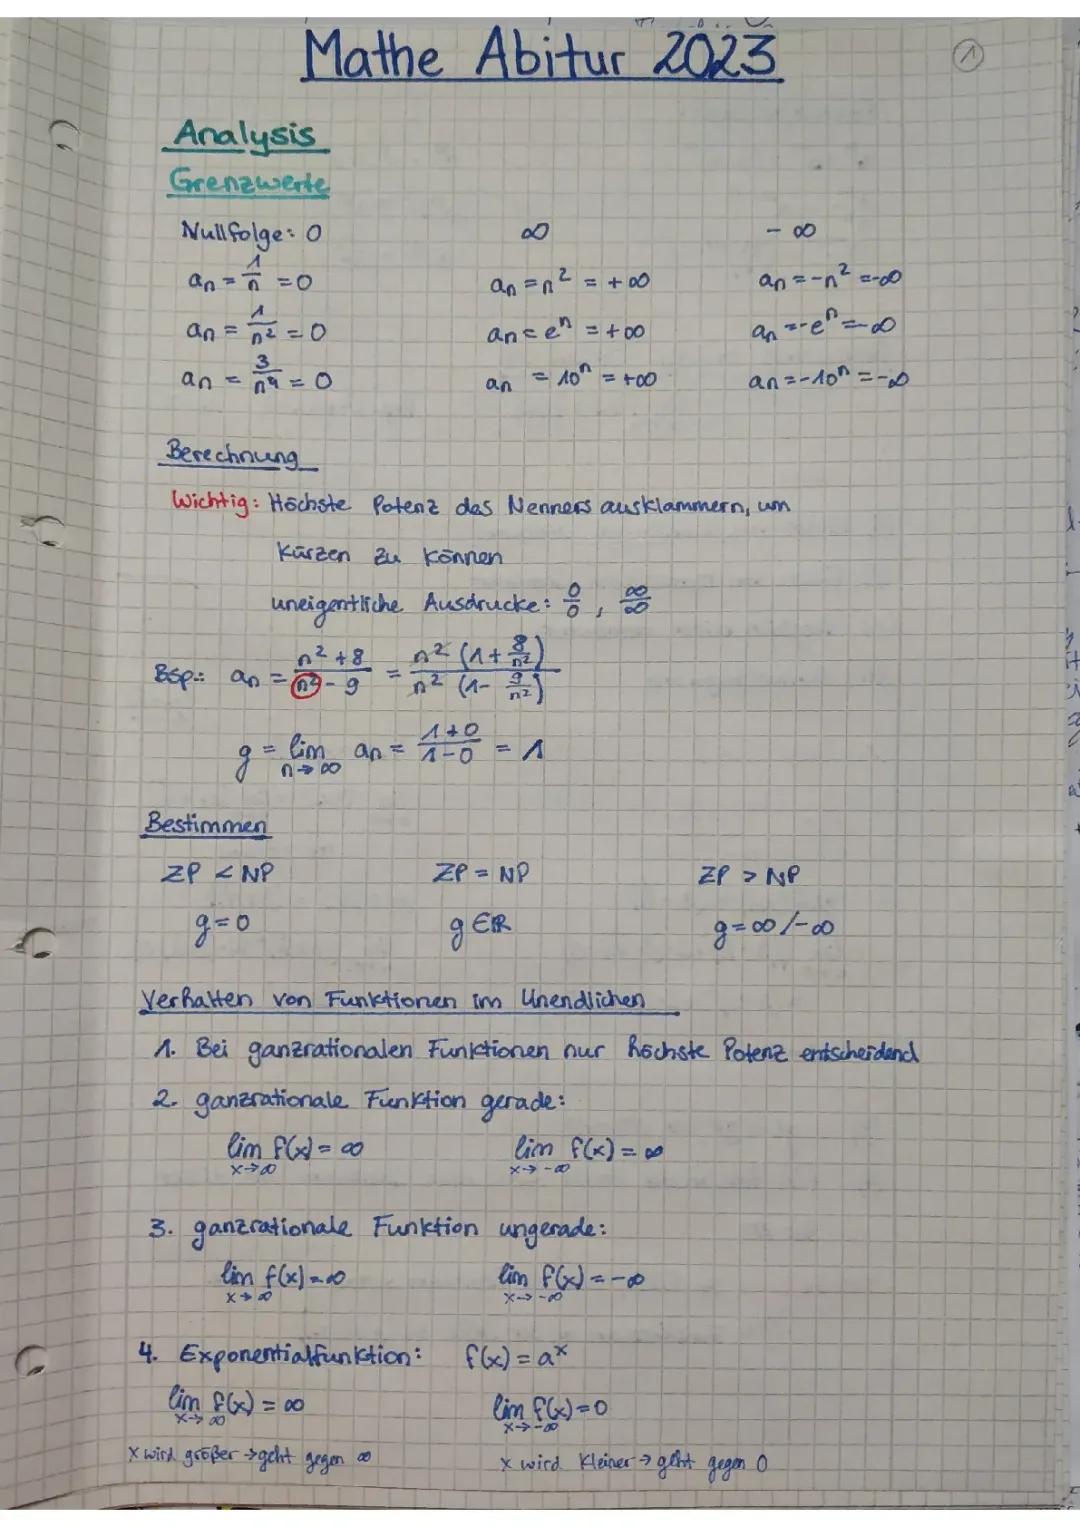 Mathe Abitur 2023
1
Analysis
Grenzwerte
Nullfolge: 0 ∞ - ∞
an = 1/n = 0 an = n² = +∞ an = -n² = -∞
an = 1/n² = 0 an = eⁿ = +∞ an = -eⁿ = -∞
an = 3/n⁴ = 0 an = 10ⁿ = +∞ an = -10ⁿ = -∞
Berechnung
Wichtig: Höchste Potenz des Nenners ausklammern, um
kürzen zu können
uneigentliche Ausdrucke: 0/0, ∞/∞
Bsp.: an = (n² + 8)/(n² - 9) = (n² (1 + 8/n²))/(n² (1 - 9/n²))
g = lim n→∞ an = (1+0)/(1-0) = 1
Bestimmen
ZP < NP ZP = NP ZP > NP
g = 0 g ∈ ℝ g = ∞ / -∞
Verhalten von Funktionen im Unendlichen
1. Bei ganzrationalen Funktionen nur höchste Potenz entscheidend
2. ganzrationale Funktion gerade:
lim x→∞ f(x) = ∞ lim x→-∞ f(x) = ∞
3. ganzrationale Funktion ungerade:
lim x→∞ f(x) = ∞ lim x→-∞ f(x) = -∞
4. Exponentialfunktion: f(x) = aˣ
lim x→∞ f(x) = ∞ lim x→-∞ f(x) = 0
x wird größer → geht gegen ∞ x wird kleiner → geht gegen 0